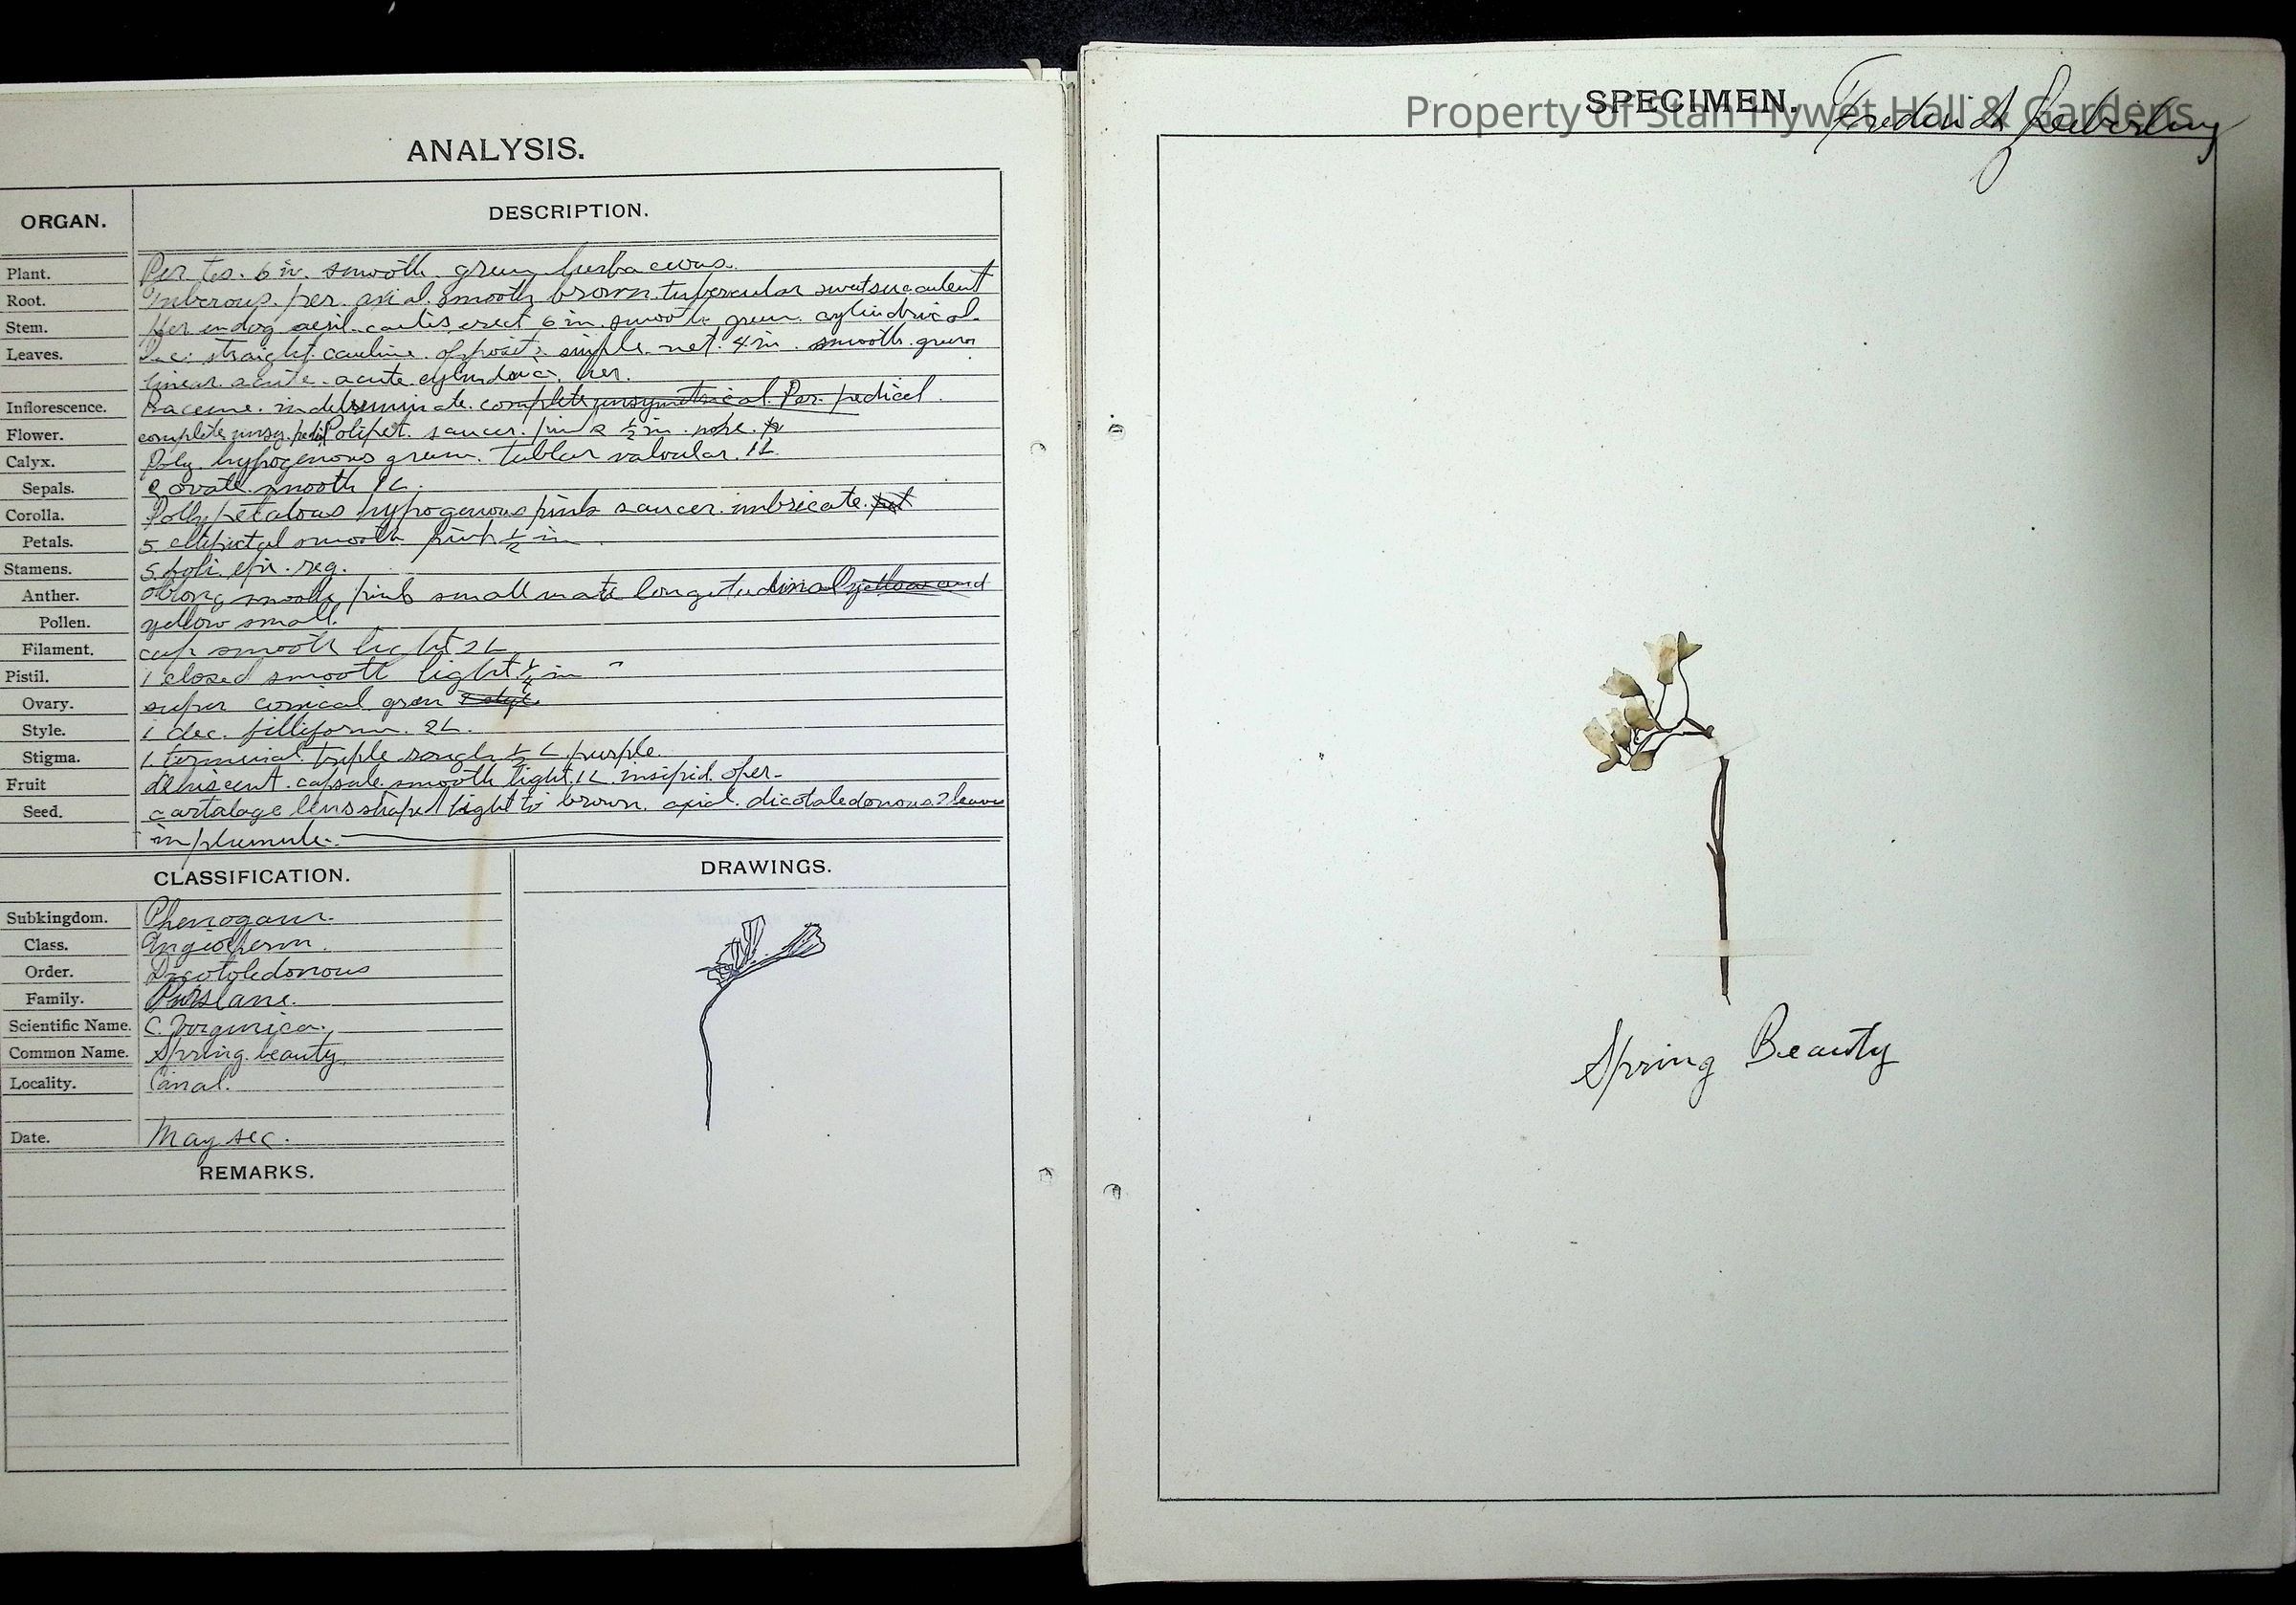 ANALYSIS.
ORGAN. DESCRIPTION.
Plant. Per. tes. 6 in. smooth. green herbaceous.
Root. Tuberous. per. axial. smooth brown. tubercular sweet succulent
Stem. Her endog aesil. caulis erect 6 in. smooth green. cylindrical.
Leaves. straight. cauline. opposite simple. net. 4 in. smooth. green
linear. acute. acute. her.
Inflorescence. Raceme. indeterminate. complete unsymetrical. Per. pedical.
Flower. complete unsy. Polipet. saucer. pink 1/2 in.
Calyx. Poly. hypogenous green. tublar valvular. 1L.
Sepals. 2 ovate. smooth 1L.
Corolla. Pollypetalous hypogenous pink saucer. imbricate. pet
Petals. 5 smooth pink 1/2 in.
Stamens. 5 poli. epi. reg.
Anther. oblong smooth pink small inate longetudinal yellow and
Pollen. yellow small.
Filament. cup smooth light 2L
Pistil. 1 closed smooth light 1/4 in
Ovary. super conical green
Style. 1 dec. filliform. 2L.
Stigma. 1 terminal triple rough 1/2 L. purple.
Fruit dehiscent. capsule. smooth light. 1L. insipid. oper.
Seed. cartalage lens shaped light to brown. axial. dicotaledonous. 2 leaves
in plumule.
CLASSIFICATION.
Subkingdom. Phenogam.
Class. Angiosperm.
Order. Dycotyledonous
Family. Purslane.
Scientific Name. C. Vorginica.
Common Name. Spring beauty.
Locality. Canal.
Date. May sec.
REMARKS.
DRAWINGS.
SPECIMEN. Frederick Seiberling
Property of Stan Hywet Hall & Gardens
Spring Beauty